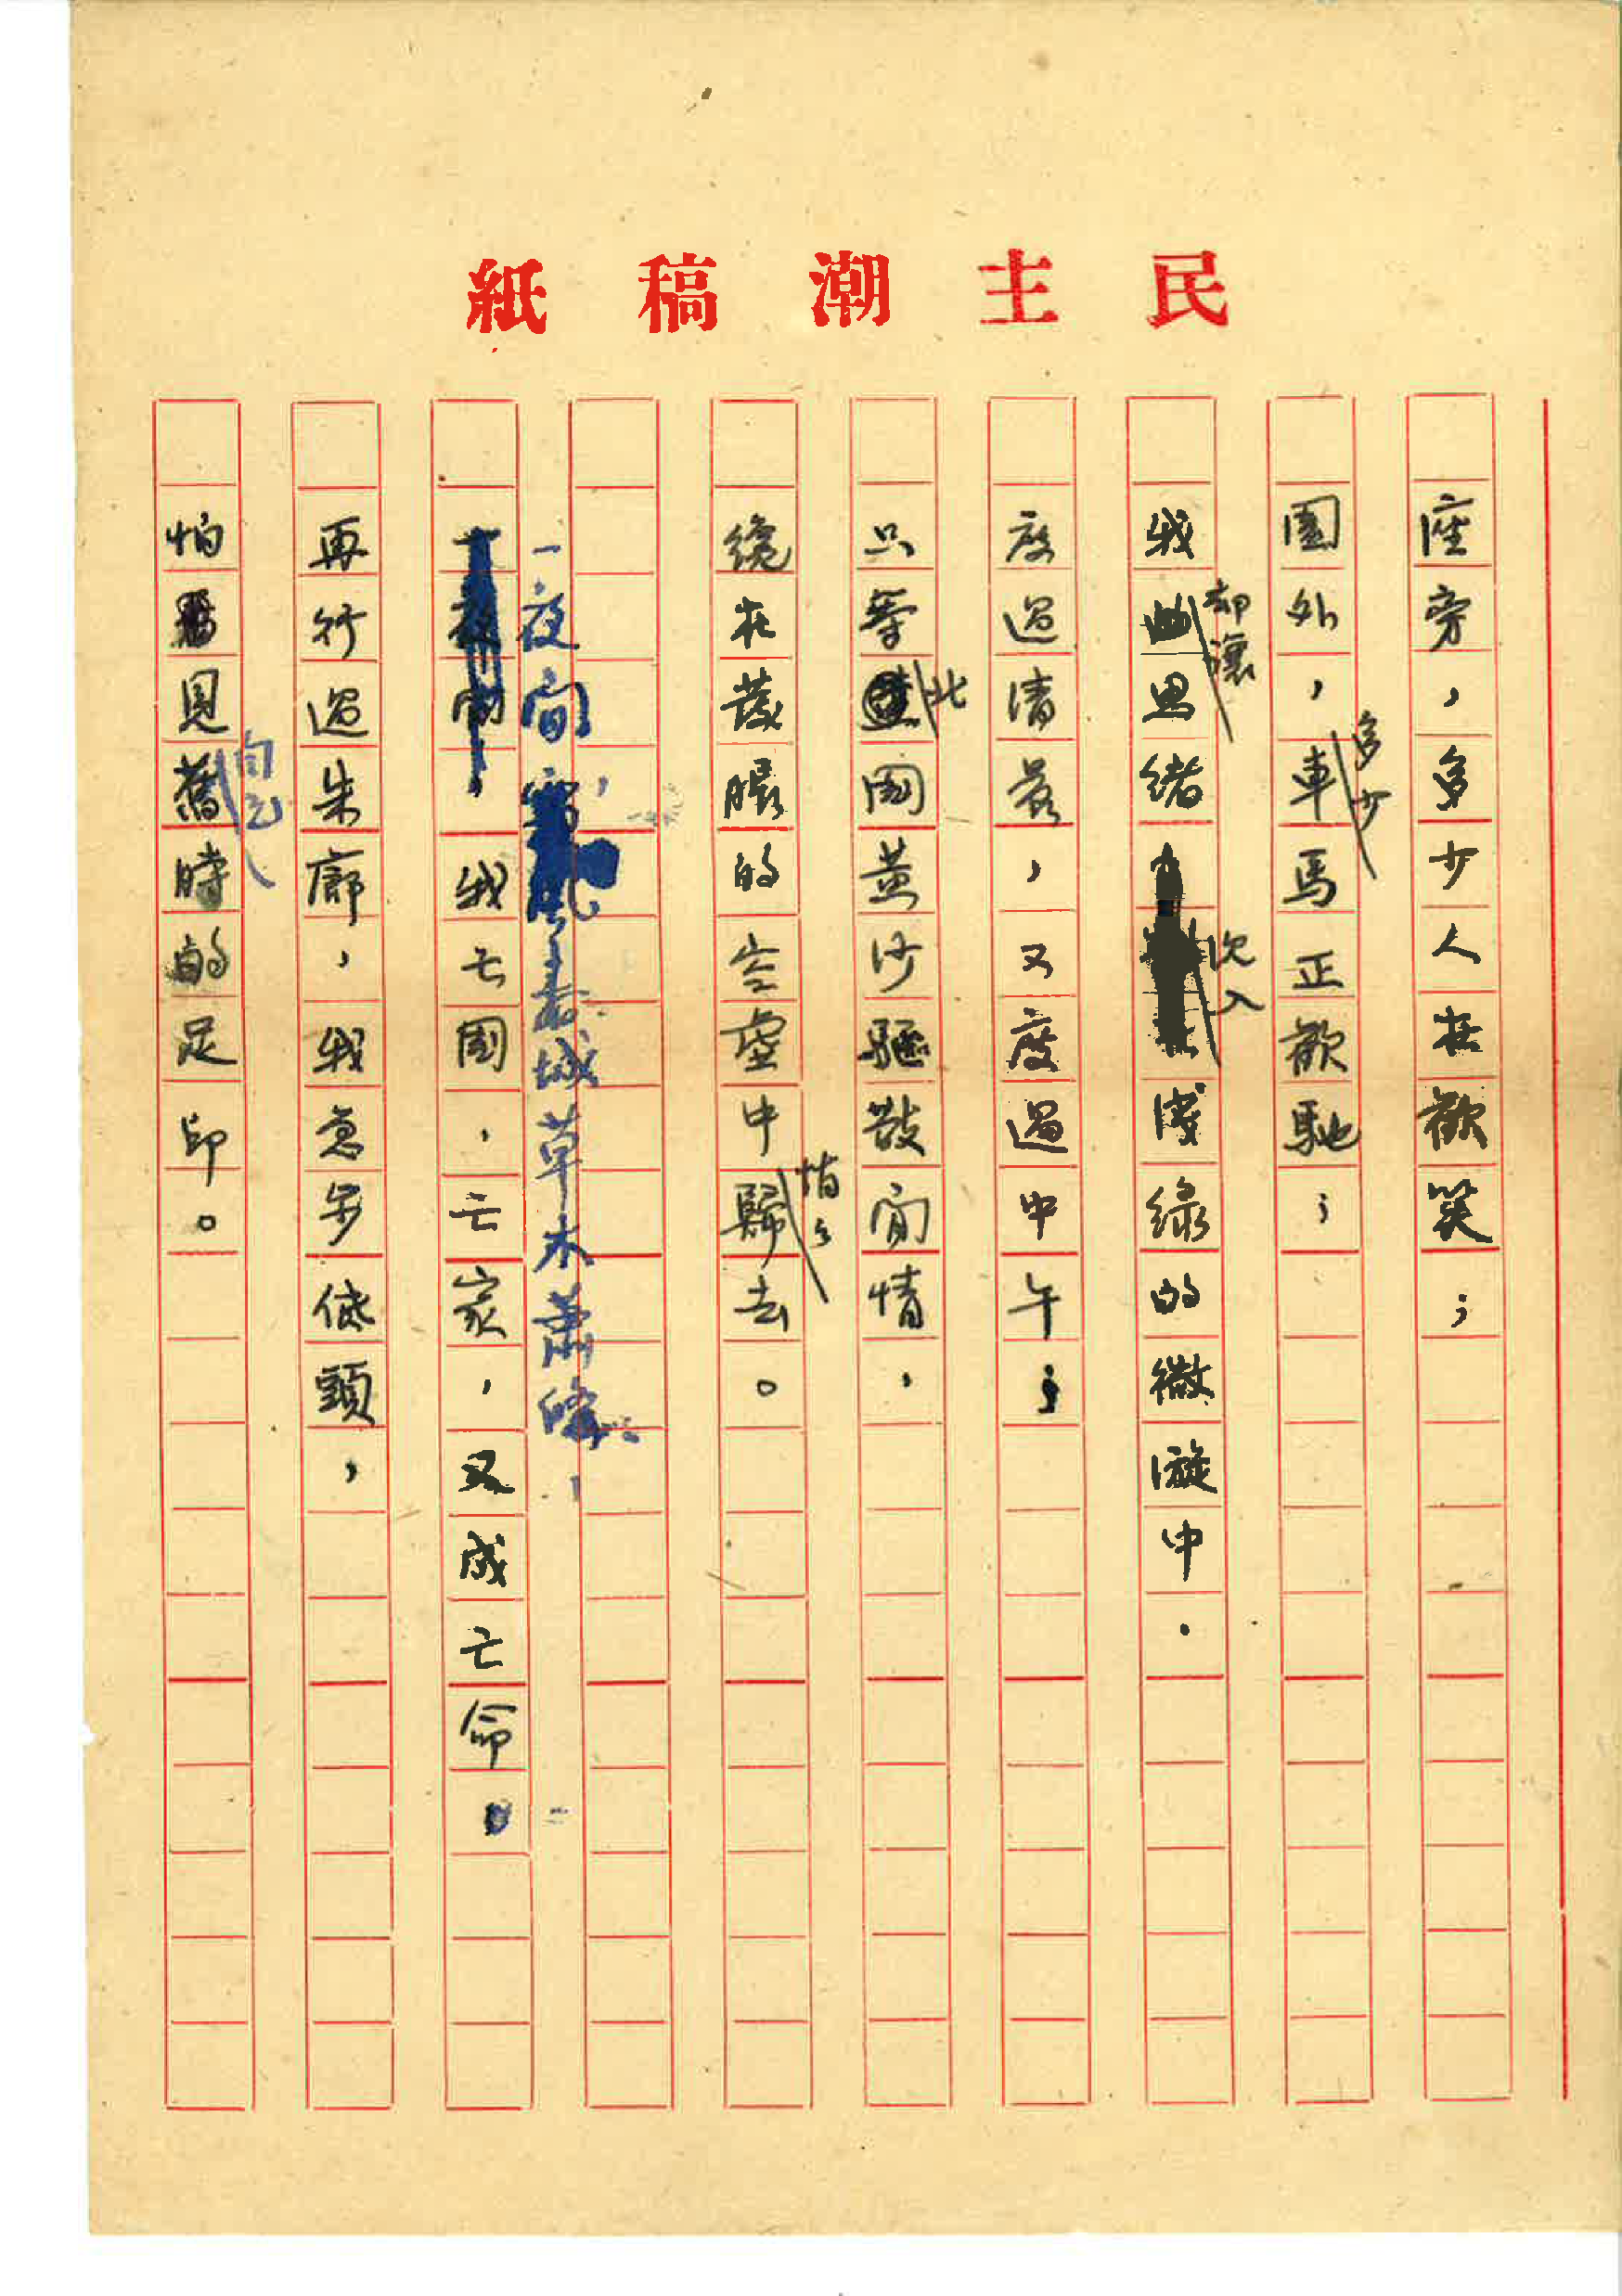 民主潮稿紙
座旁,多少人在歡笑;
園外,多少車馬正歡馳;
我却讓思緒沉入淺綠的微漩中.
度過清晨,又度過中午;
只等北國黃沙驅散閒情,
纔在朦朧的空虛中悄悄歸去。
一夜間,春城草木蕭條;
我亡國,亡家,又成亡命。
再行過朱廊,我急步低頭,
怕見自己舊時的足印。